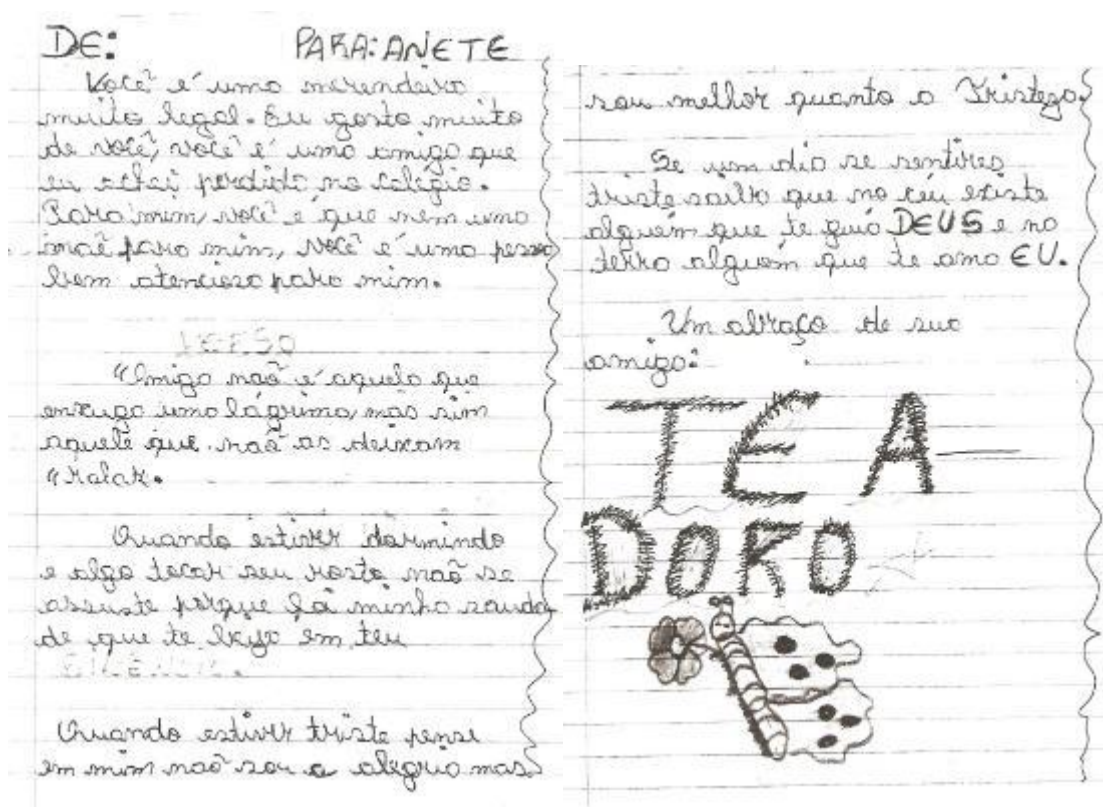 DE: PARA: ANETE
Você é uma merendeira
muito legal. Eu gosto muito
de você, você é uma amiga que
eu achei perdida no colégio.
Para mim, você é que nem uma
maê para mim, você é uma pessoa
bem atenciosa para mim.
"Amigo naõ é aquele que
enxuga uma lágrima, mas sim
aquele que naõ as deixam
"rolar.
Quando estiver dormindo
e algo tocar seu rosto naõ se
assuste porque é a minha sauda
de que te beija em teu
Quando estiver triste pense
em mim naõ sou a alegria mas
sou melhor quanto a Tristeza.
Se um dia se sentires
triste saiba que no céu existe
alguém que te guia DEUS e na
terra alguém que te ama EU.
Um abraço de sua
amiga:
TE A
DORO